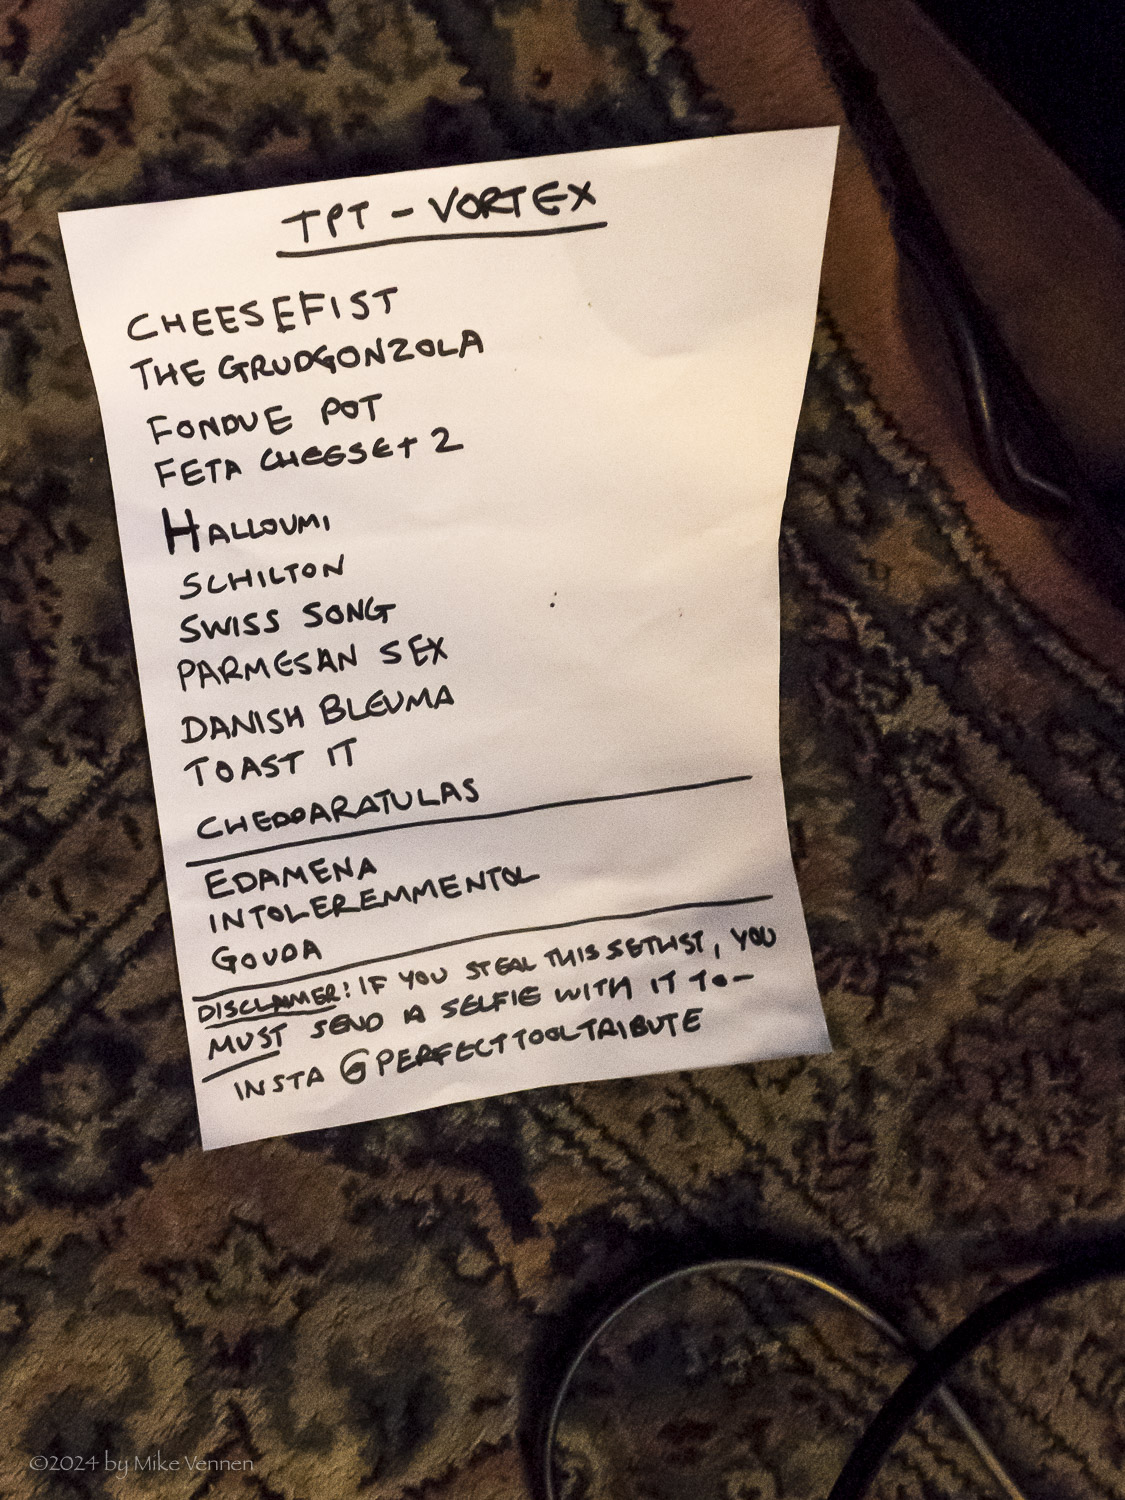 TPT - VORTEX
CHEESEFIST
THE GRUDGONZOLA
FONDUE POT
FETA CHEESE+ 2
HALLOUMI
SCHILTON
SWISS SONG
PARMESAN SEX
DANISH BLEUMA
TOAST IT
CHEDDARATULAS
EDAMENA
INTOLEREMMENTOL
GOUDA
DISCLAIMER! IF YOU STEAL THIS SETLIST, YOU
MUST SEND A SELFIE WITH IT TO-
INSTA @PERFECTTOOLTRIBUTE
©2024 by Mike Vennen